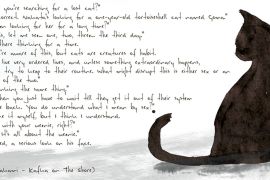 you're searching for a lost cat?"
correct. Nakata's looking for a one-year-old tortoiseshell cat named Goma."
been looking for her for a long time?"
let me see one, two, three. the third day."
there thinking for a time.
're aware of this, but cats are creatures of habit.
live very ordered lives, and unless something extraordinary happens,
try to keep to their routine. What might disrupt this is either sex or an
of the two."
thinking the same thing."
then you just have to wait till they get it out of their system
be back. You do understand what I mean by sex?"
it myself, but I think I understand.
with your weenie, right?"
it's all about the weenie."
ed, a serious look on his face.
- Kafka on the Shore)